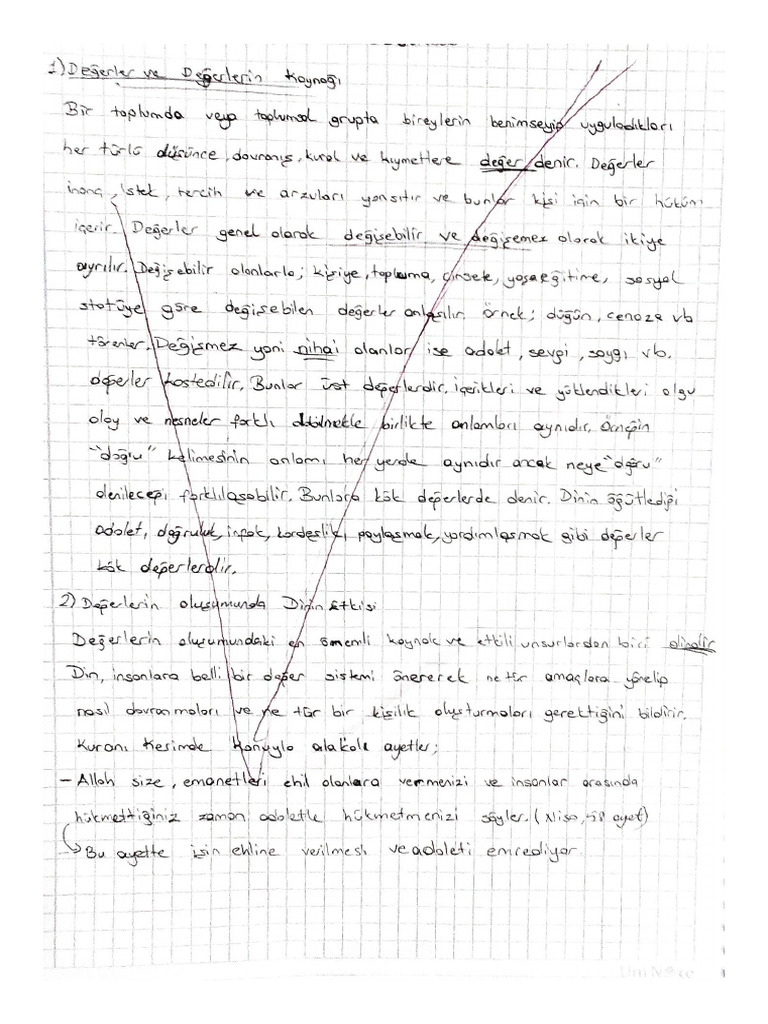 1) Değerler ve Değerlerin Kaynağı
Bir toplumda veya toplumsal grupta bireylerin benimseyip uyguladıkları
her türlü düşünce, davranış, kural ve kıymetlere değer denir. Değerler
inanç, istek, tercih ve arzuları yansıtır ve bunlar kişi için bir hüküm
içerir. Değerler genel olarak değişebilir ve değişemez olarak ikiye
ayrılır. Değişebilir olanlarla; kişiye, topluma, cinsete, yaşa, eğitime, sosyal
statüye göre değişebilen değerler anlaşılır. Örnek; düğün, cenaze vb
törenler. Değişmez yani nihai olanlar ise adalet, sevgi, saygı vb.
değerler kastedilir. Bunlar üst değerlerdir. içerikleri ve yüklendikleri olgu
olay ve nesneler farklı bilmekle birlikte anlamları aynıdır. Örneğin
"doğru" kelimesinin anlamı her yerde aynıdır ancak neye "doğru"
denileceği farklılaşabilir. Bunlara kök değerlerde denir. Dinin öğütlediği
adalet, doğruluk, infak, kardeşlik, paylaşmak, yardımlaşmak gibi değerler
kök değerlerdir.
2) Değerlerin oluşumunda Dinin Etkisi
Değerlerin oluşumundaki en önemli kaynak ve etkili unsurlardan biri dindir
Din, insanlara belli bir değer sistemi önererek ne tür amaçlara yönelip
nasıl davranmaları ve ne tür bir kişilik oluşturmaları gerektiğini bildirir.
Kuranı Kerimde konuyla alakalı ayetler;
- Allah size, emanetleri ehil olanlara vermenizi ve insanlar arasında
hükmettiğiniz zaman adaletle hükmetmenizi söyler. (Nisa, 58 ayet)
Bu ayette işin ehline verilmesi ve adaleti emrediyor.